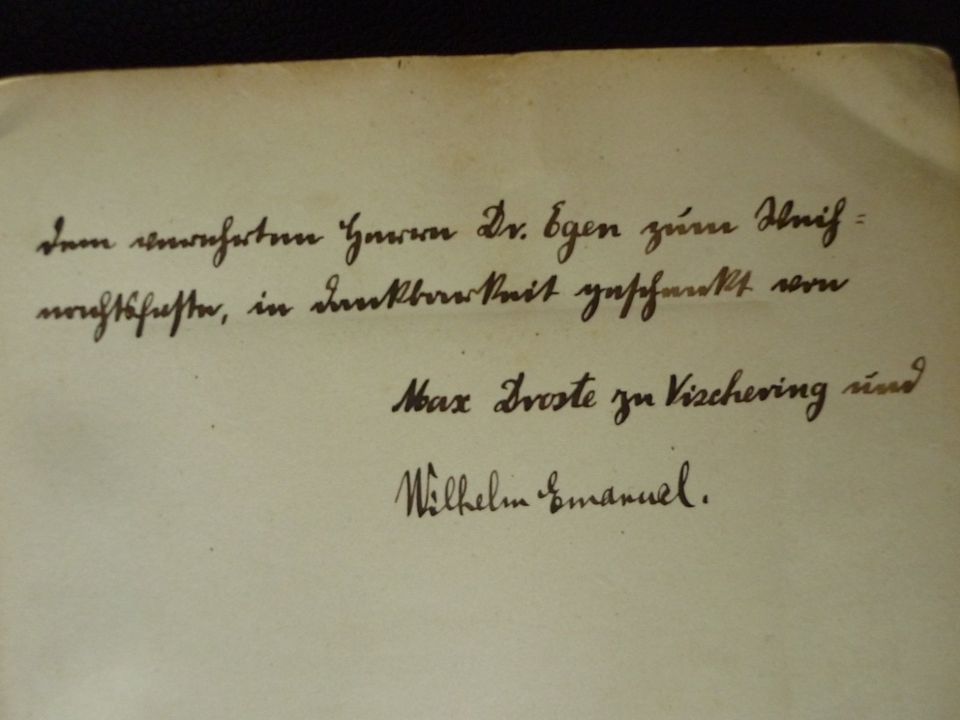 dem verehrten Herrn Dr. Egen zum Weih=
nachtsfeste, in dankbarkeit geschenkt von
Max Droste zu Vischering und
Wilhelm Emanuel.